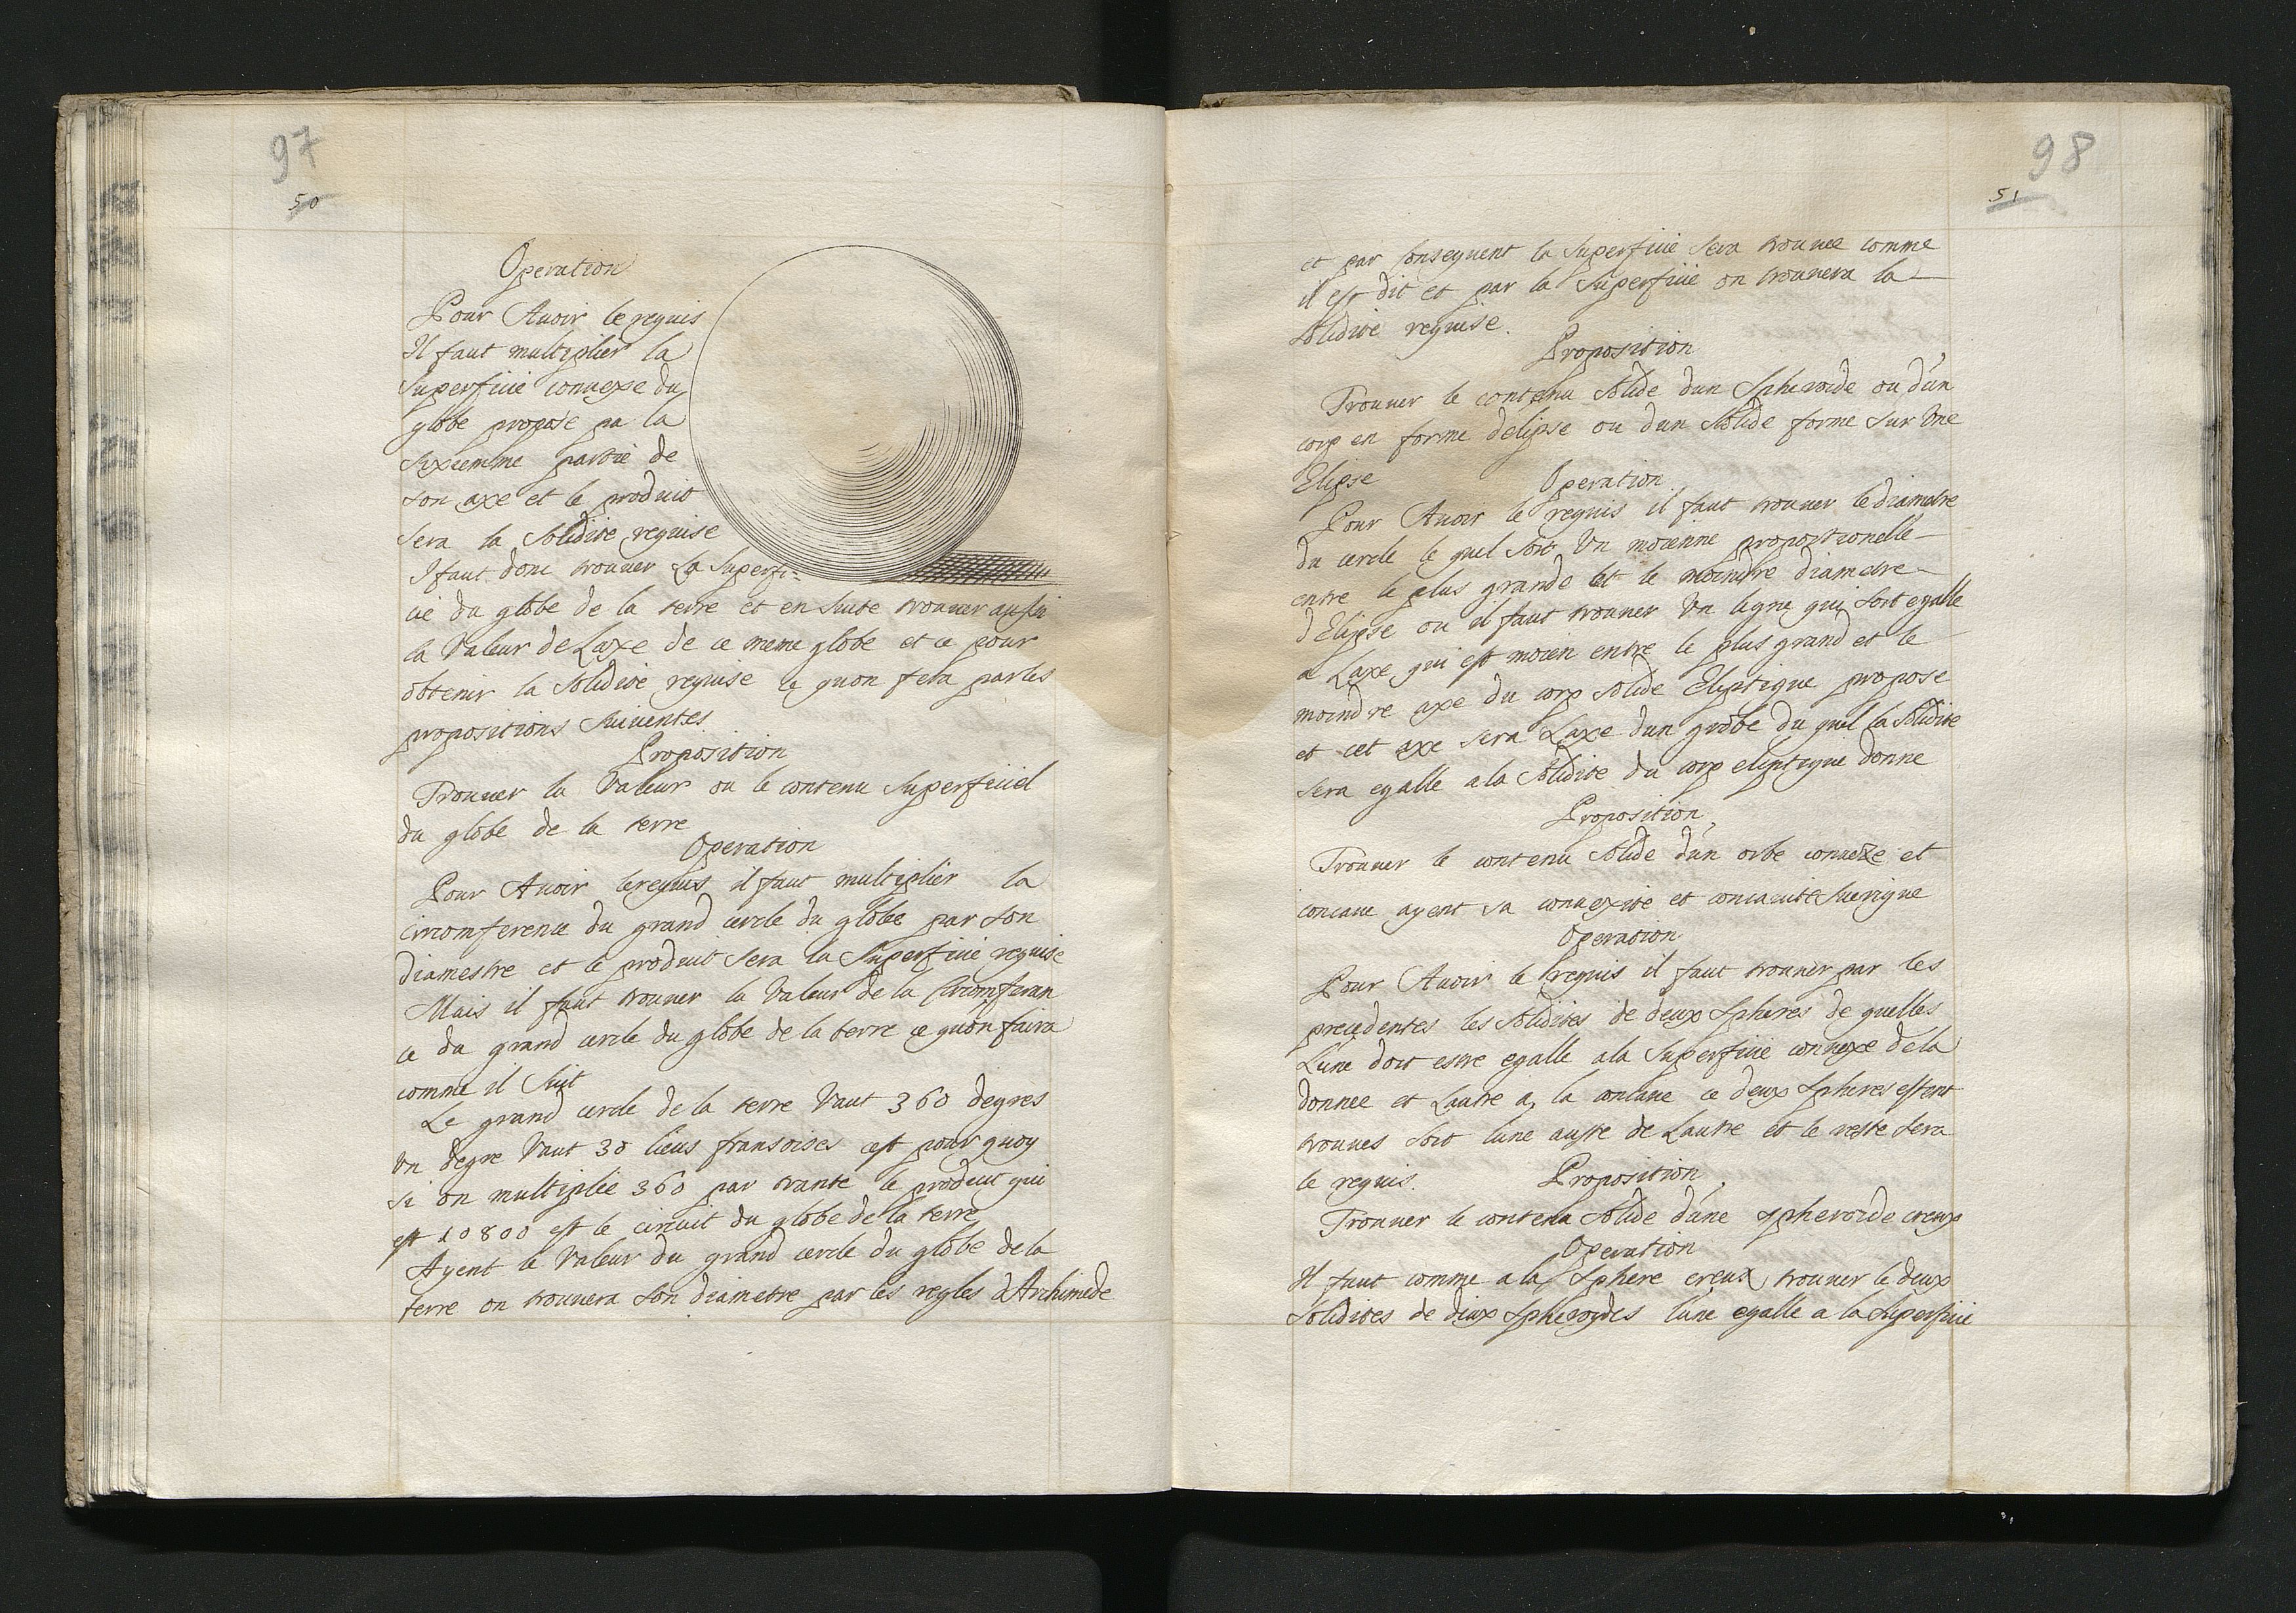 97
50
Operation
Pour Avoir le requis
Il faut multiplier la
superficie convexe du
globe propose pa la
sixiemme partie de
son axe et le produit
sera la solidite requise
I faut donc trouver La superfi=
cie du globe de la terre et en suite trouver aussi
la valeur de Laxe de ce meme globe et ce pour
obtenir la solidite requise ce quon fera par les
propositions suiventes
Proposition
Trouver la valeur ou le contenu superficiel
du globe de la terre
Operation
Pour Avoir le requis il faut multiplier la
circomference du grand cercle du globe par son
diamestre et le produit sera la superficie requise
Mais il faut trouver la valeur de la Circomferan
ce du grand cercle du globe de la terre ce quon faira
comme il suit
Le grand cercle de la terre vaut 360 degres
un degre vaut 30 lieus fransoises cest pour quoy
si on multiplie 360 par trante le produit qui
est 10800 est le circuit du globe de la terre
Ayent le valeur du grand cercle du globe de la
terre on trouvera son diametre par les regles dArchimede
98
51
et par consequent la superficie sera trouvee comme
il est dit et par la superficie on trouvera la
solidite requise.
Proposition
Trouver le contenu solide dun spheroide ou dun
corp en forme delipse ou dun solide forme sur une
Elipse
Operation
Pour Avoir le requis il faut trouver le diametre
du cercle le quel soit un moienne proportionelle
entre le plus grande et le moindre diametre
d'Elipse ou il faut trouver un ligne qui soit egalle
a Laxe qui est moien entre le plus grand et le
moindre axe du corp solide Eliptique propose
et cet axe sera Laxe dun globe du quel la solidite
sera egalle a la solidite du corp eliptique donne
Proposition
Trouver le contenu solide dun orbe convexe et
concave ayent sa convexite et concavite
Operation
Pour Avoir le requis il faut trouver par les
precedentes les solidites de deux spheres de quelles
Lune doit estre egalle a la superficie convexe de la
donnee et Lautre a la concave ce deux spheres estent
trouves soit lune austee de Lautre et le reste sera
le requis.
Proposition
Trouver le contenu solide dune spheroide creux
Operation
Il faut comme a la sphere creux trouver le deux
solidites de deux spheroydes lune egalle a la superficie